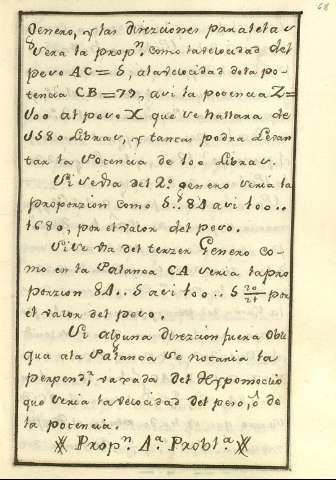 68
Genero, y las direzciones paralelas
sera la propn. como la velocidad del
peso AC = 5, a la velocidad de la po-
tencia CB = 79, asi la potencia Z =
100 al peso X que se hallara de
1580 libras, y tantas podra levan
tar la Potencia de 100 libras.
Si se usa del 2º genero seria la
proporzion como 5..84 asi 100..
1680, por el valor del peso.
Si se usa del terzer Genero co-
mo en la Palanca CA seria la pro
porzion 84..5 asi 100..5 20/21 por
el valor del peso.
Si alguna direzcion fuera obli
qua a la Palanca se notaria la
perpendr. vaxada del Hypomoclio
que seria la velocidad del peso, ô de
la potencia.
Propn. 4a. Probla.